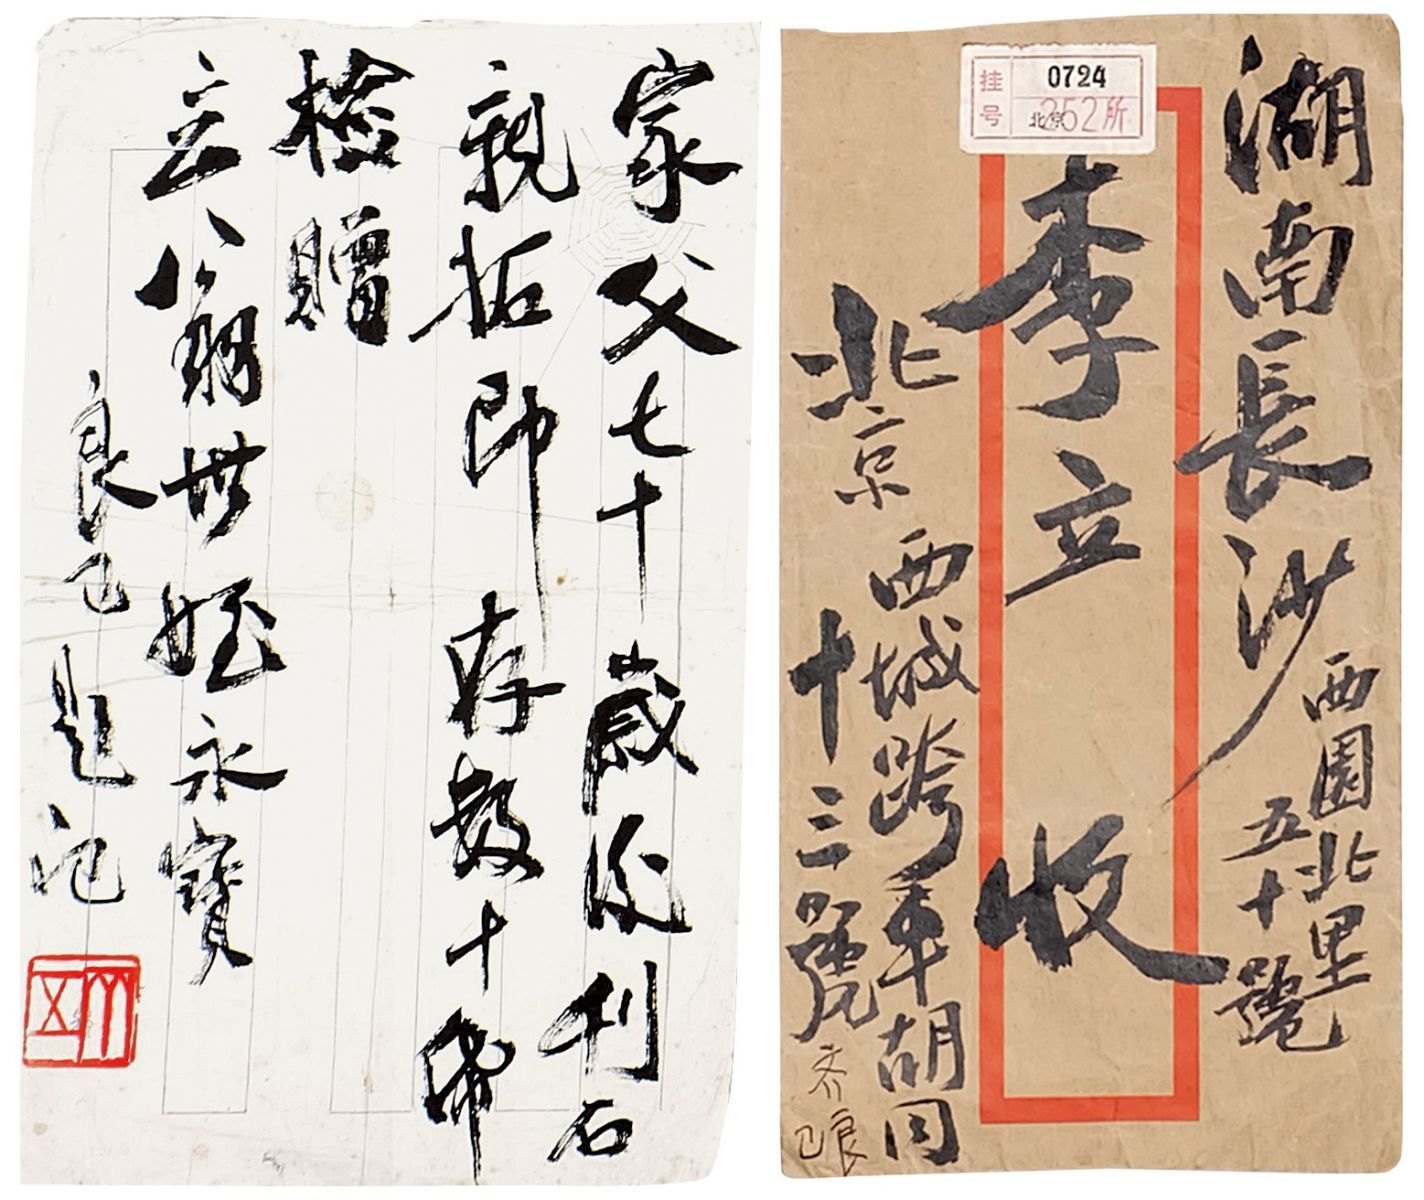 家父七十歲後刊石
親拓印存數十帋
檢贈
立翁世姪永寶
良已題記
挂号
0724
北京252所
湖南長沙
西園北里
五十號
李立收
北京
西城跨車胡同
十三號
齐良已